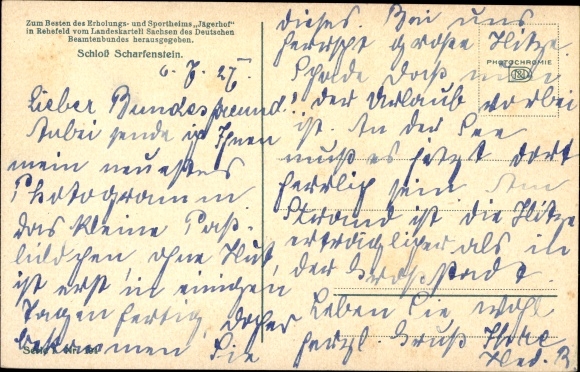 Zum Besten des Erholungs- und Sportheims „Jägerhof"
in Rehefeld vom Landeskartell Sachsen des Deutschen
Beamtenbundes herausgegeben.
Schloß Scharfenstein.
6. 7. 27.
Lieber Bundesfreund!
Anbei sende ich Ihnen
mein neuestes
Photogramm
das kleine Paß-
bildchen, ohne Hut,
ist erst in einigen
Tagen fertig, daher
bekommen Sie
dieses. Bei uns
herrscht große Hitze.
Schade daß man
der Urlaub vorbei
ist. An der See
muß es jetzt dort
herrlich sein. Am
Strand ist die Hitze
erträglicher als in
der Großstadt.
Leben Sie wohl
herzl. Gruß Ihre
Hed. B.
PHOTOCHROMIE